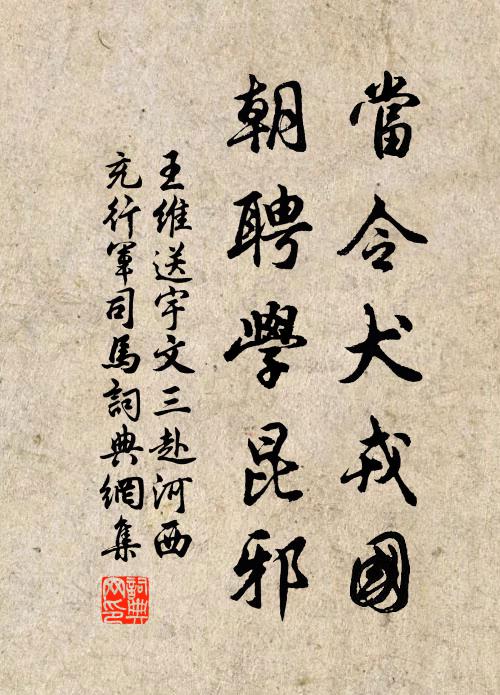 當令犬戎國
朝聘學昆邪
王維送宇文三赴河西
充行軍司馬詞典網集
詞典
网印